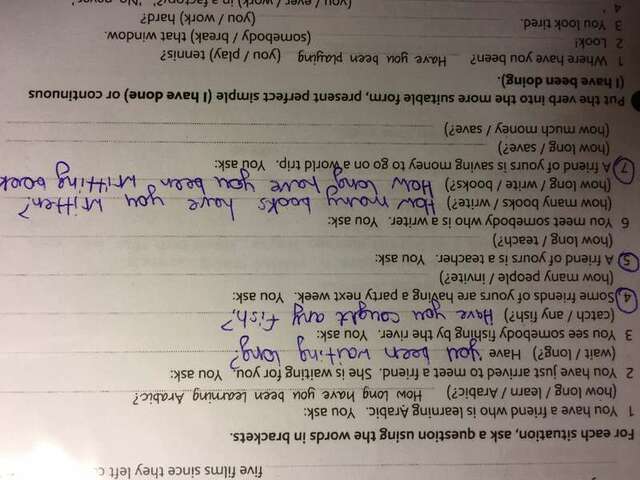 five films since they left
For each situation, ask a question using the words in brackets.
1 You have a friend who is learning Arabic. You ask:
(how long / learn / Arabic?) How long have you been learning Arabic?
2 You have just arrived to meet a friend. She is waiting for you. You ask:
(wait / long?) Have you been waiting long?
3 You see somebody fishing by the river. You ask:
(catch / any fish?) Have you caught any fish?
4 Some friends of yours are having a party next week. You ask:
(how many people / invite?)
5 A friend of yours is a teacher. You ask:
(how long / teach?)
6 You meet somebody who is a writer. You ask:
(how many books / write?) How many books have you written?
(how long / write / books?) How long have you been writting book
7 A friend of yours is saving money to go on a world trip. You ask:
(how long / save?)
(how much money / save?)
Put the verb into the more suitable form, present perfect simple (I have done) or continuous
(I have been doing).
1 Where have you been? Have you been playing (you / play) tennis?
2 Look! (somebody / break) that window.
3 You look tired. (you / work) hard?
4 (you / ever / work) in a factory? 'No, never.'